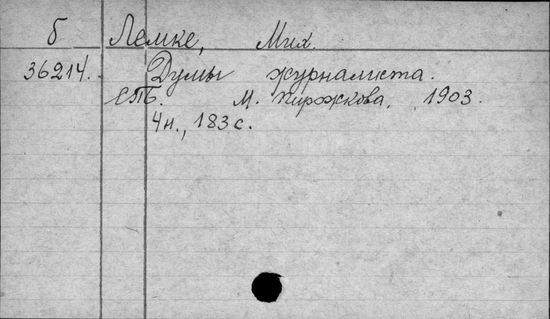 б Лемке, Мих.
36214. Думы журналиста.
СПб. М. Пирожкова, 1903.
4н., 183 с.